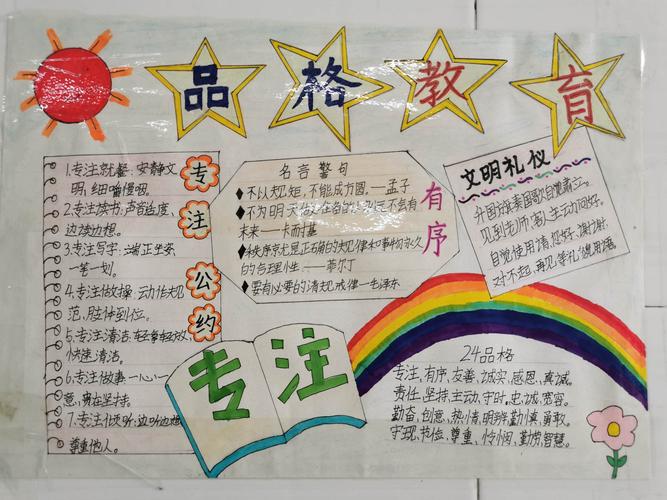 品格教育
专注公约
1.专注就餐:安静文
明,细嚼慢咽.
2.专注读书:声音适度,
边读边想.
3.专注写字:端正坐姿
一笔一划.
4.专注做操:动作规
范,肢体到位.
5.专注清洁:轻拿轻放,
快速清洁.
6.专注做事:一心一
意,贵在坚持.
7.专注倾听:边听边想
尊重他人。
名言警句
◆不以规矩,不能成方圆.—孟子
◆不为明天做准备的人永远不会有
未来—卡耐基
◆秩序就是正确的规律和事物永久
的合理性—菲尔丁
◆要有必要的清规戒律—毛泽东
有序
文明礼仪
升国旗奏国歌自觉肃立。
见到老师、客人主动问好。
自觉使用请、您好、谢谢、
对不起、再见等礼貌用语
专注
24品格
专注,有序,友善,诚实,感恩,真诚。
责任,坚持,主动,守时,忠诚,宽容。
勤奋,创意,热情,明辨,勤慎,勇敢。
守规,节俭,尊重,怜悯,勤劳,智慧。